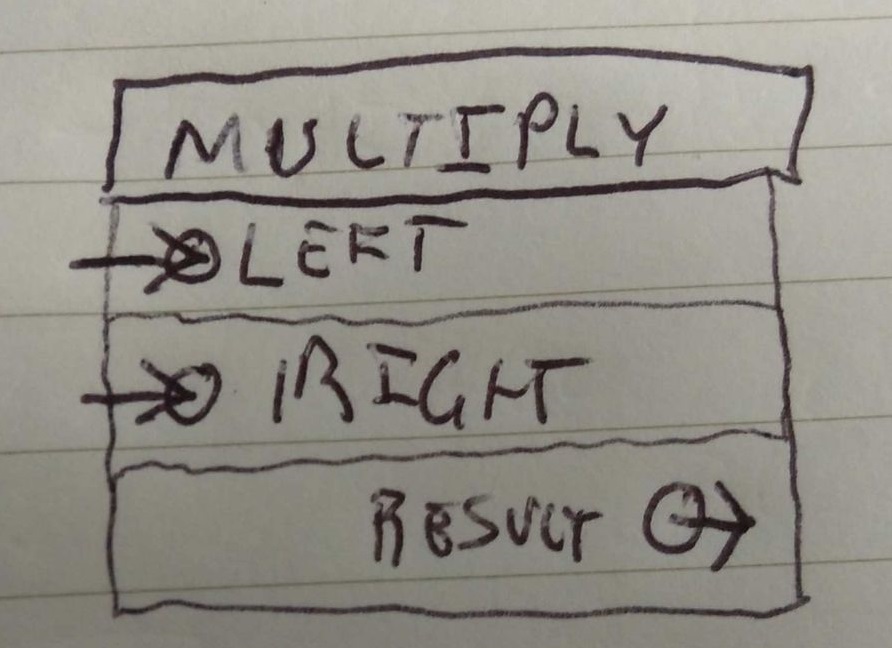 MULTIPLY
LEFT
RIGHT
RESULT